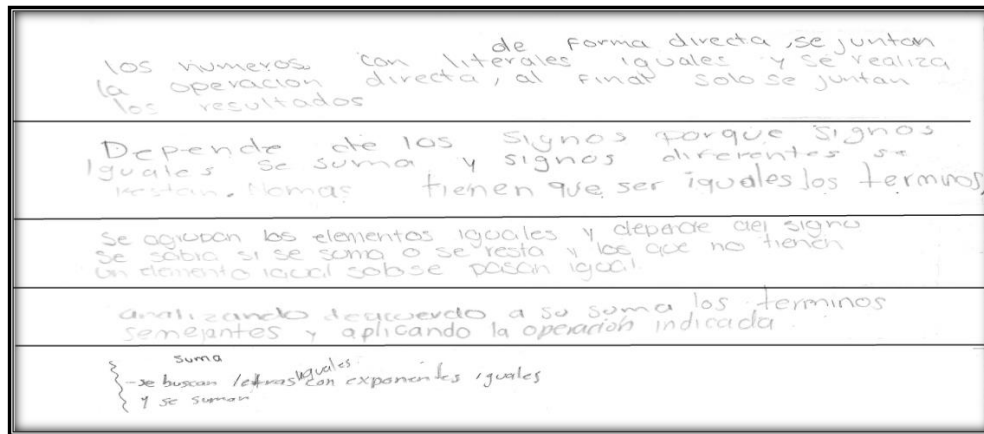 de forma directa, se juntan
los numeros con literales iguales y se realiza
la operacion directa, al final solo se juntan
los resultados
Depende de los signos porque signos
iguales se suma y signos diferentes se
restan. Nomas tienen que ser iguales los terminos,
se agrupan los elementos iguales y depende del signo
se sabra si se suma o se resta y los que no tienen
un elemento igual solo se pasan igual.
analizando deacuerdo a su suma los terminos
semejantes y aplicando la operación indicada
suma
- se buscan letras iguales con exponentes iguales
y se suman